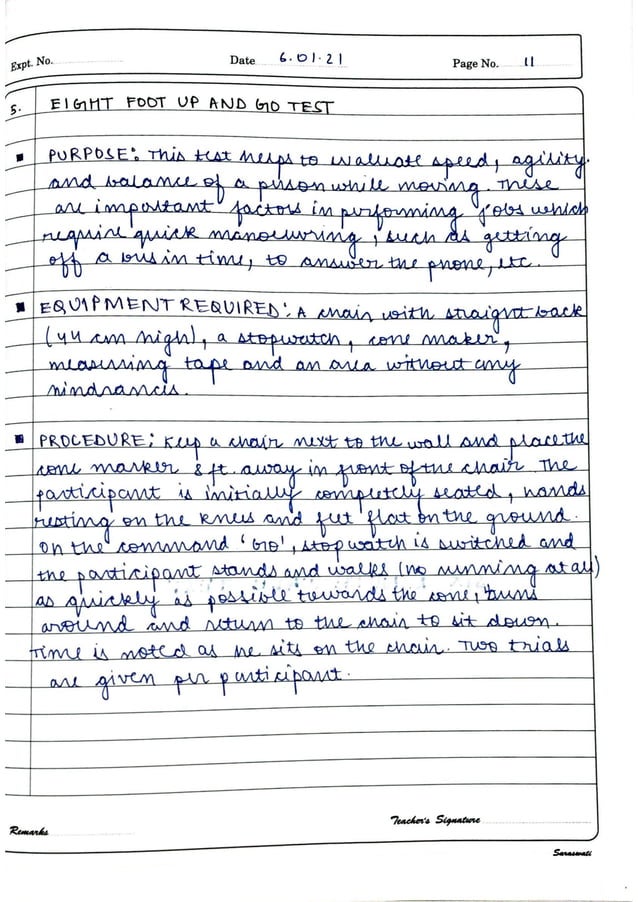 Expt. No.
Date 6.01.21
Page No. 11
5. EIGHT FOOT UP AND GO TEST
PURPOSE: This test helps to evaluate speed, agility.
and balance of a person while moving. These
are important factors in performing jobs which
require quick manoeuvring, such as getting
off a bus in time, to answer the phone, etc.
EQUIPMENT REQUIRED: A chair with straight back
(44 cm high), a stopwatch, cone maker,
measuring tape and an area without any
hindrances.
PROCEDURE: Keep a chair next to the wall and place the
cone marker 8 ft. away in front of the chair. The
participant is initially completely seated, hands
resting on the knees and feet flat on the ground.
On the command 'GO', stopwatch is switched and
the participant stands and walks (no running at all)
as quickly as possible towards the cone, turns
around and return to the chair to sit down.
Time is noted as he sits on the chair. Two trials
are given per participant.
Teacher's Signature
Remarks
Saraswati